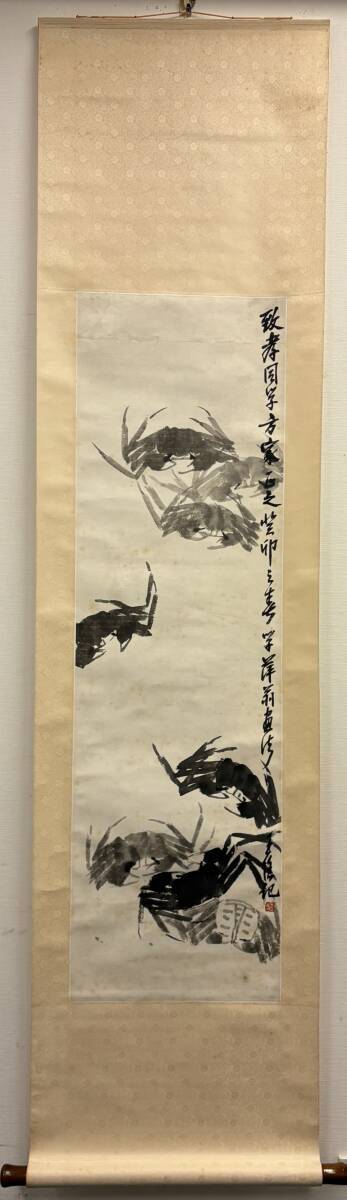 致孝同学方家正之癸卯之春学萍翁画法